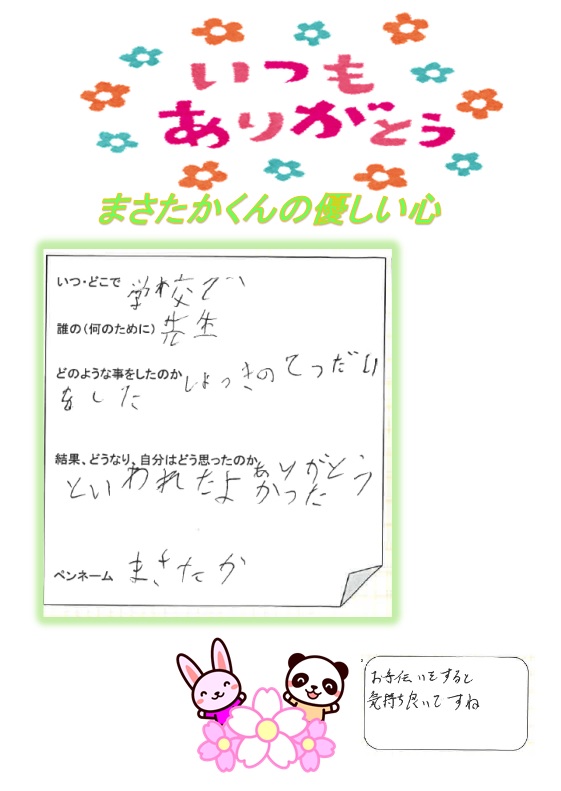 いつも
ありがとう
まさたかくんの優しい心
いつ・どこで 学校で
誰の(何のために) 先生
どのような事をしたのか しょっきのてつだい
をした
結果、どうなり、自分はどう思ったのか ありがとう
といわれたよかった
ペンネーム まさたか
お手伝いをすると
気持ち良いですね